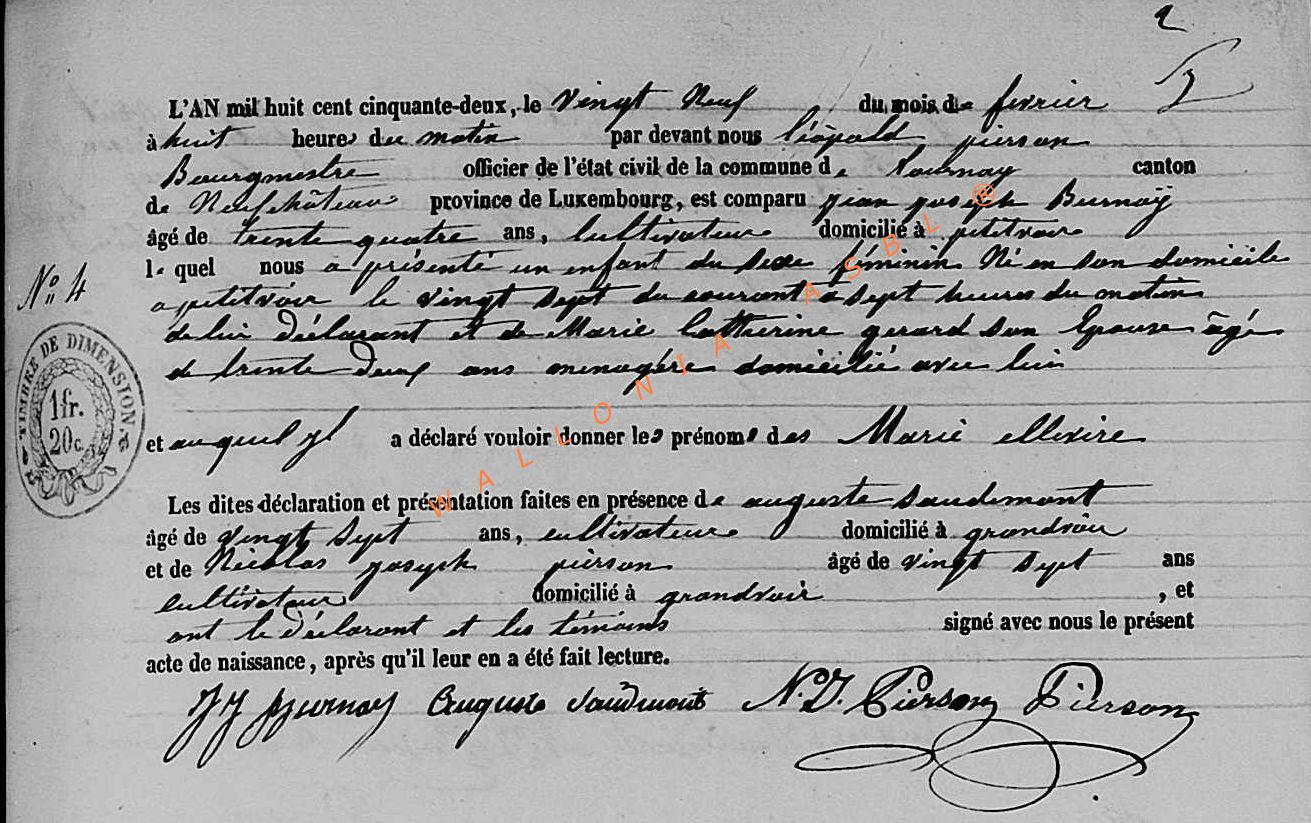 2
L'AN mil huit cent cinquante-deux, le vingt Neuf du mois de fevrier
à huit heures du matin par devant nous Léopold pierson
Bourgmestre officier de l'état civil de la commune de Tournay canton
de Neufchâteau province de Luxembourg, est comparu jean joseph Burnaÿ
âgé de trente quatre ans, Cultivateur domicilié à petitvoir
lequel nous a présenté un enfant du sexe féminin Né en son domicile
a petitvoir le vingt sept du courant à sept heures du matin
de lui déclarant et de Marie Catherine gerard son Epouse âgé
de trente deux ans menagère domicilié avec lui
et auquel il a déclaré vouloir donner les prénoms des Marie
Les dites déclaration et présentation faites en présence de auguste Saudemont
âgé de vingt sept ans, cultivateur domicilié à grandvoir
et de Nicolas joseph pierson âgé de vingt sept ans
cultivateur domicilié à grandvoir, et
ont le déclarant et les témoins signé avec nous le présent
acte de naissance, après qu'il leur en a été fait lecture.
JJ Burnay Auguste Saudemont N.J. Pierson Pierson
N° 4
TIMBRE DE DIMENSION.
1 fr.
20 c.
WALLONIA ASBL ®